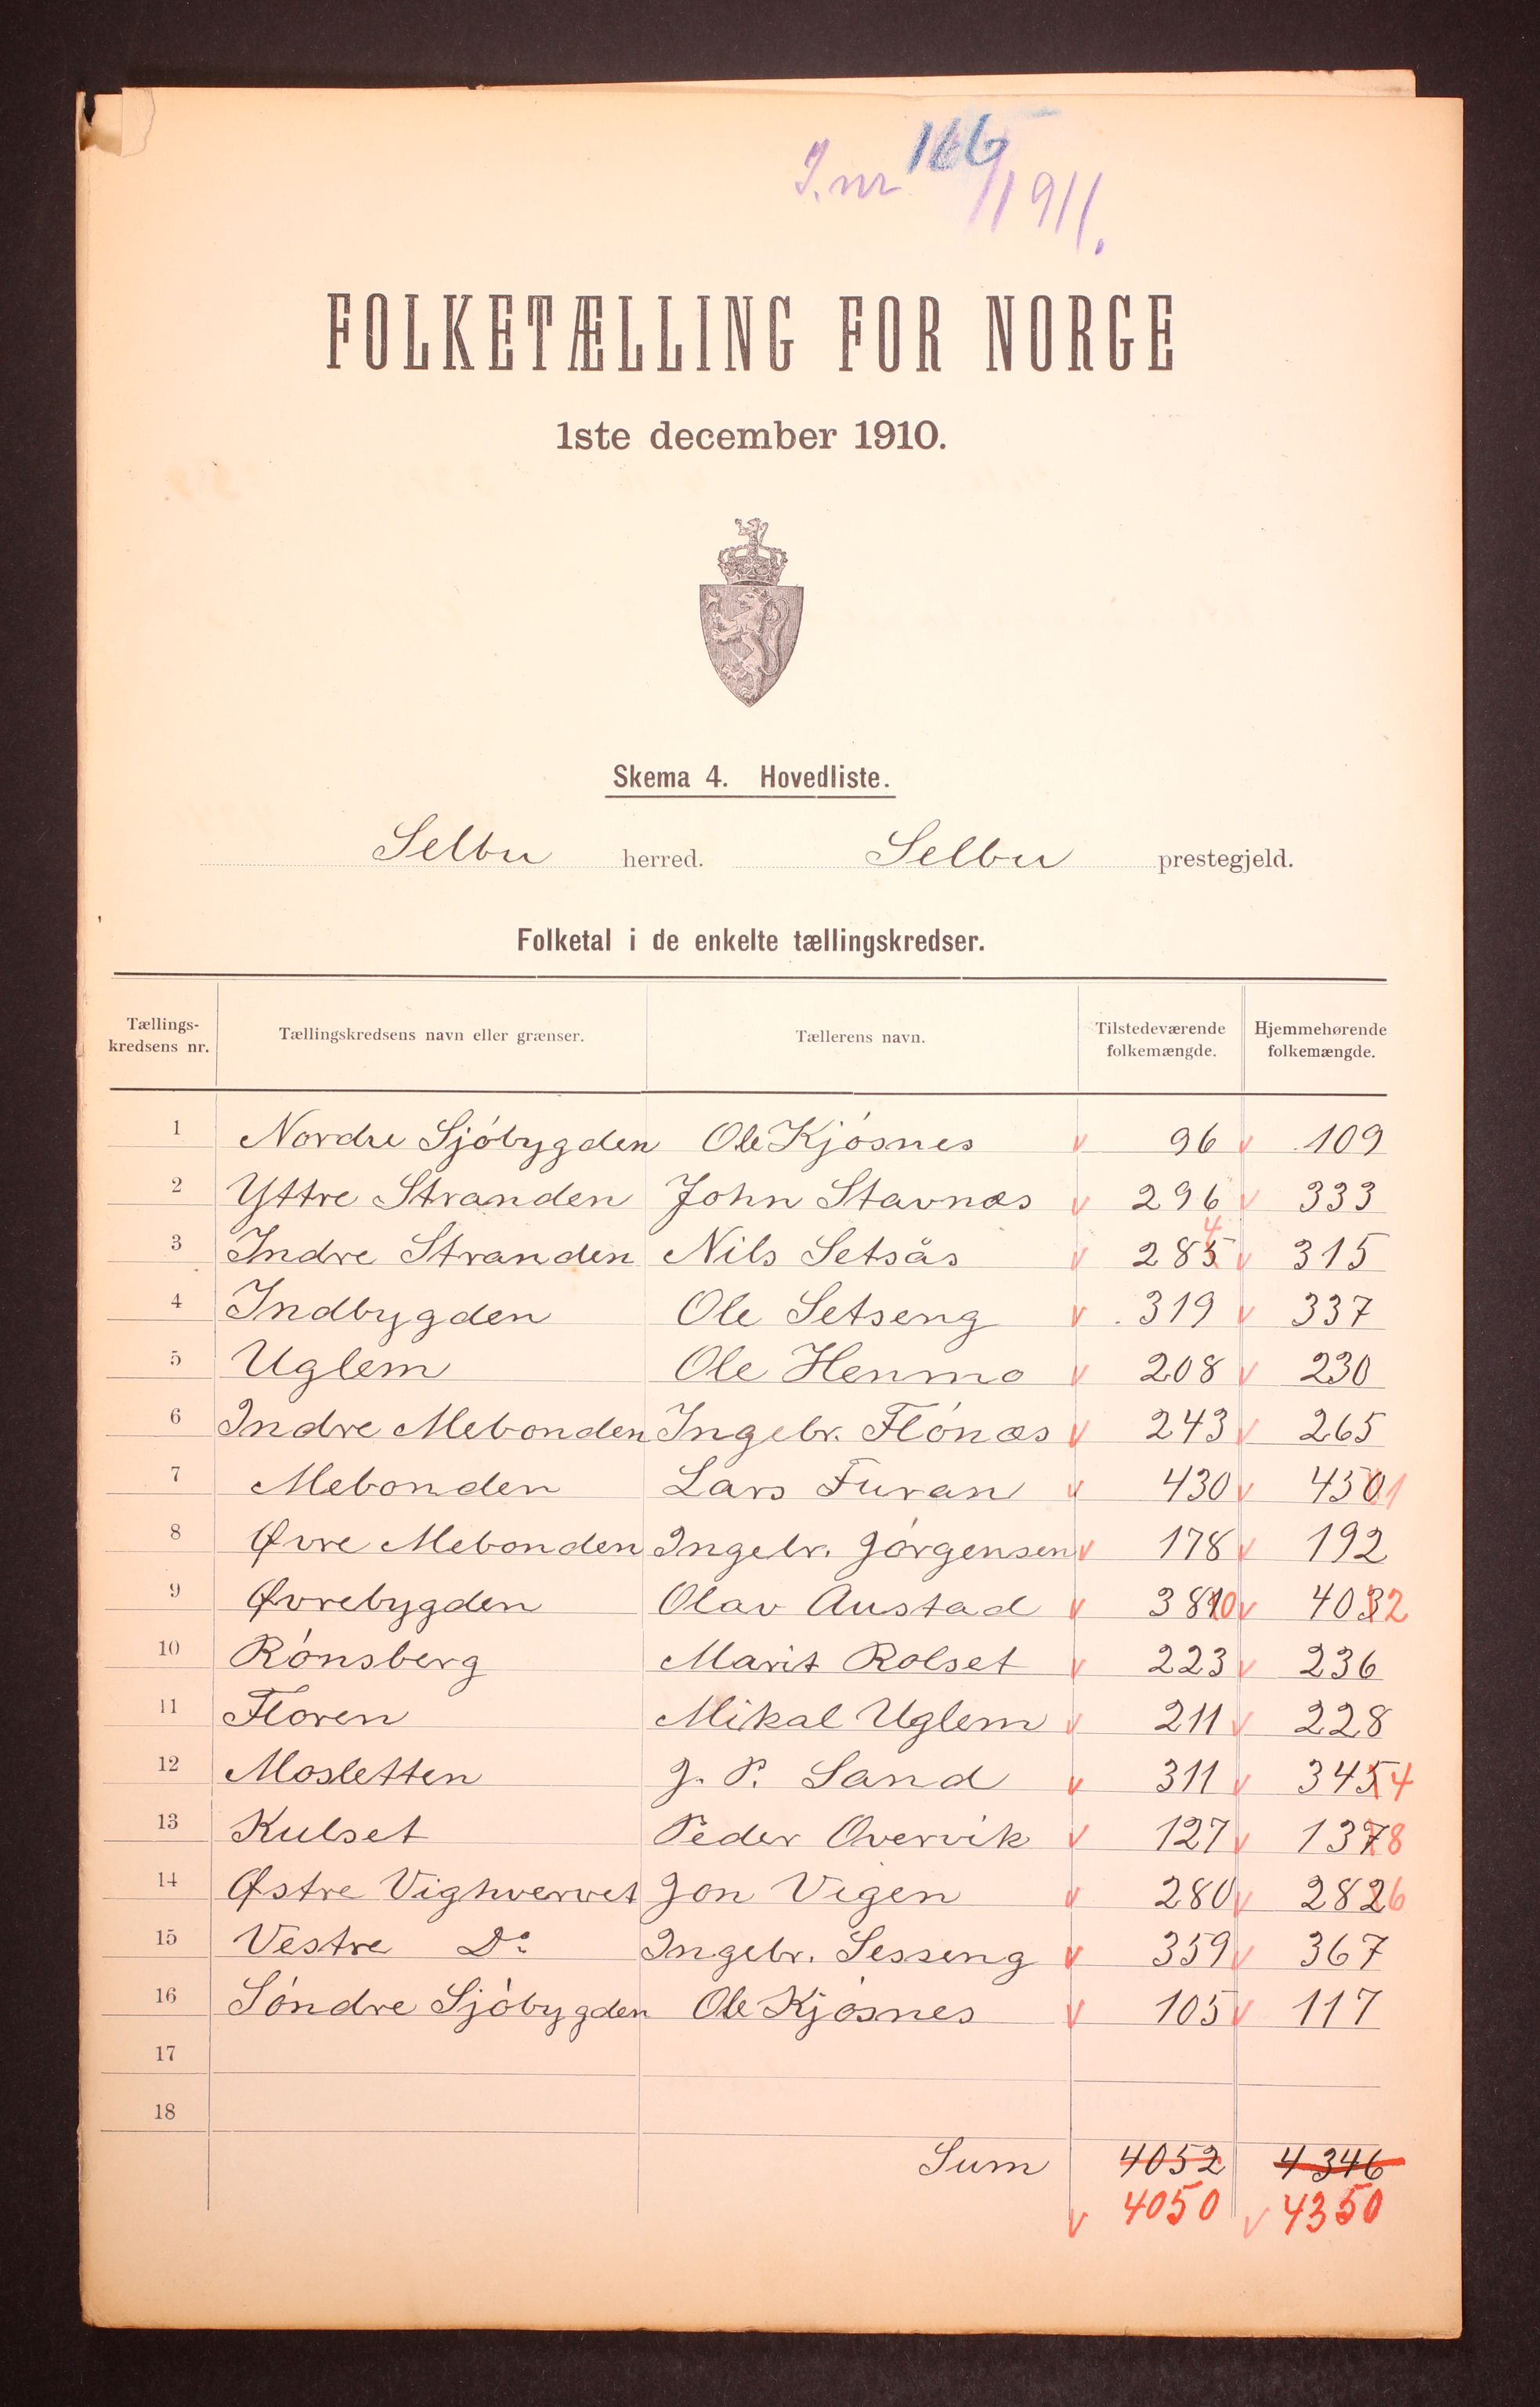 J. nr 166/1911.
FOLKETÆLLING FOR NORGE
1ste december 1910.
Skema 4. Hovedliste.
Selbu herred. Selbu prestegjeld.
Folketal i de enkelte tællingskredser.
Tællings-kredsens nr. Tællingskredsens navn eller grænser. Tællerens navn. Tilstedeværende folkemængde. Hjemmehørende folkemængde.
1 Nordre Sjóbygden Ole Kjósnes v 96 v 109
2 Yttre Stranden John Stavnæs v 296 v 333
3 Indre Stranden Nils Setsås v 285 4 v 315
4 Indbygden Ole Setseng v 319 v 337
5 Uglem Ole Henmo v 208 v 230
6 Indre Mebonden Ingebr. Flónæs v 243 v 265
7 Mebonden Lars Furan v 430 v 450 1
8 Øvre Mebonden Ingebr. Jórgensen v 178 v 192
9 Øvrebygden Olav Austad v 381 0 v 403 2
10 Rónsberg Marit Rolset v 223 v 236
11 Floren Mikal Uglem v 211 v 228
12 Mosletten J. P. Sand v 311 v 345 4
13 Kulset Peder Overvik v 127 v 137 8
14 Østre Vighvervet Jon Vigen v 280 v 282 6
15 Vestre Do Ingebr. Sesseng v 359 v 367
16 Sóndre Sjóbygden Ole Kjósnes v 105 v 117
17
18
Sum 4052 4346
v 4050 v 4350